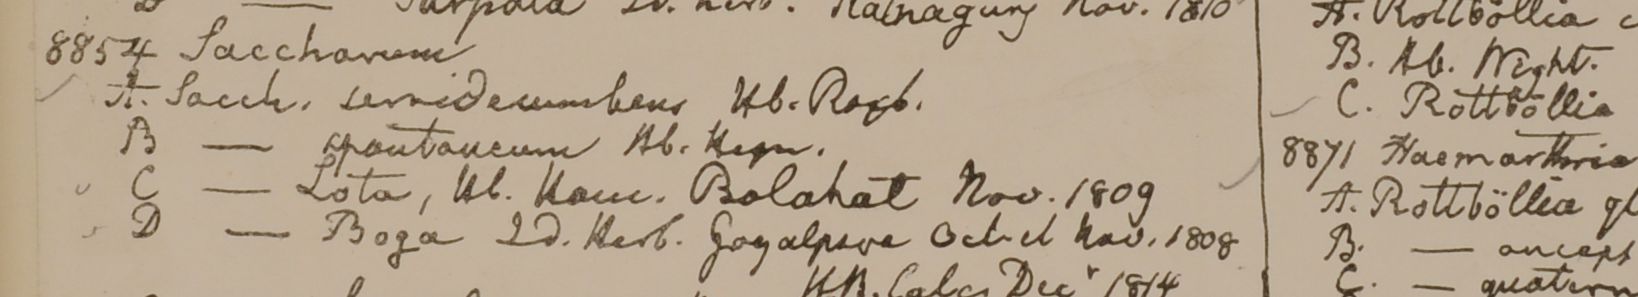 D — Id. Herb. Nathagury Nov. 1810
8854 Saccharum
A. Sacch. semidecumbens Hb. Roxb.
B — spontaneum Hb. Heyn.
C — Lota, Hb. Ham. Bolahat Nov. 1809
D — Boga Id. Herb. Goyalpara Oct. et Nov. 1808
HB. Calc. Decr 1814
A. Rottböllia
B. Hb. Wight.
C. Rottböllia
8871 Haemarthria
A. Rottböllia gl
B. — anceps
C. —